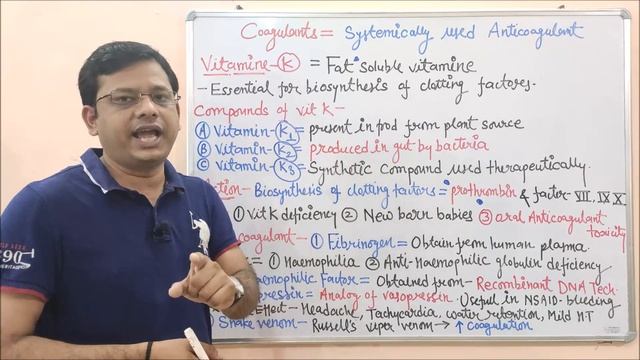 Coagulants = Systemically used Anticoagulant
Vitamine-K = Fat soluble vitamine
- Essential for biosynthesis of clotting factores.
Compounds of vit K-
A Vitamin-K1 = present in food from plant source
B Vitamin-K2 = produced in gut by bacteria
C Vitamin-K3 = Synthetic compound used therapeutically.
Action- Biosynthesis of clotting factores = prothrombin & factor-VII, IX X
1 Vit K deficiency 2 New born babies 3 oral Anticoagulant toxicity
coagulant - 1 Fibrinogen = Obtain from human plasma.
= 1 Haemophilia 2 Anti-Haemophilic globulin deficiency
Haemophilic Factor = Obtained from- Recombinant DNA Tech.
pressin = Analog of vasopressin. Useful in NSAID-bleeding
Effect - Headache, Tachycardia, water retention, Mild H.T
Snake venom - Russell's viper venom → ↑ coagulation
90